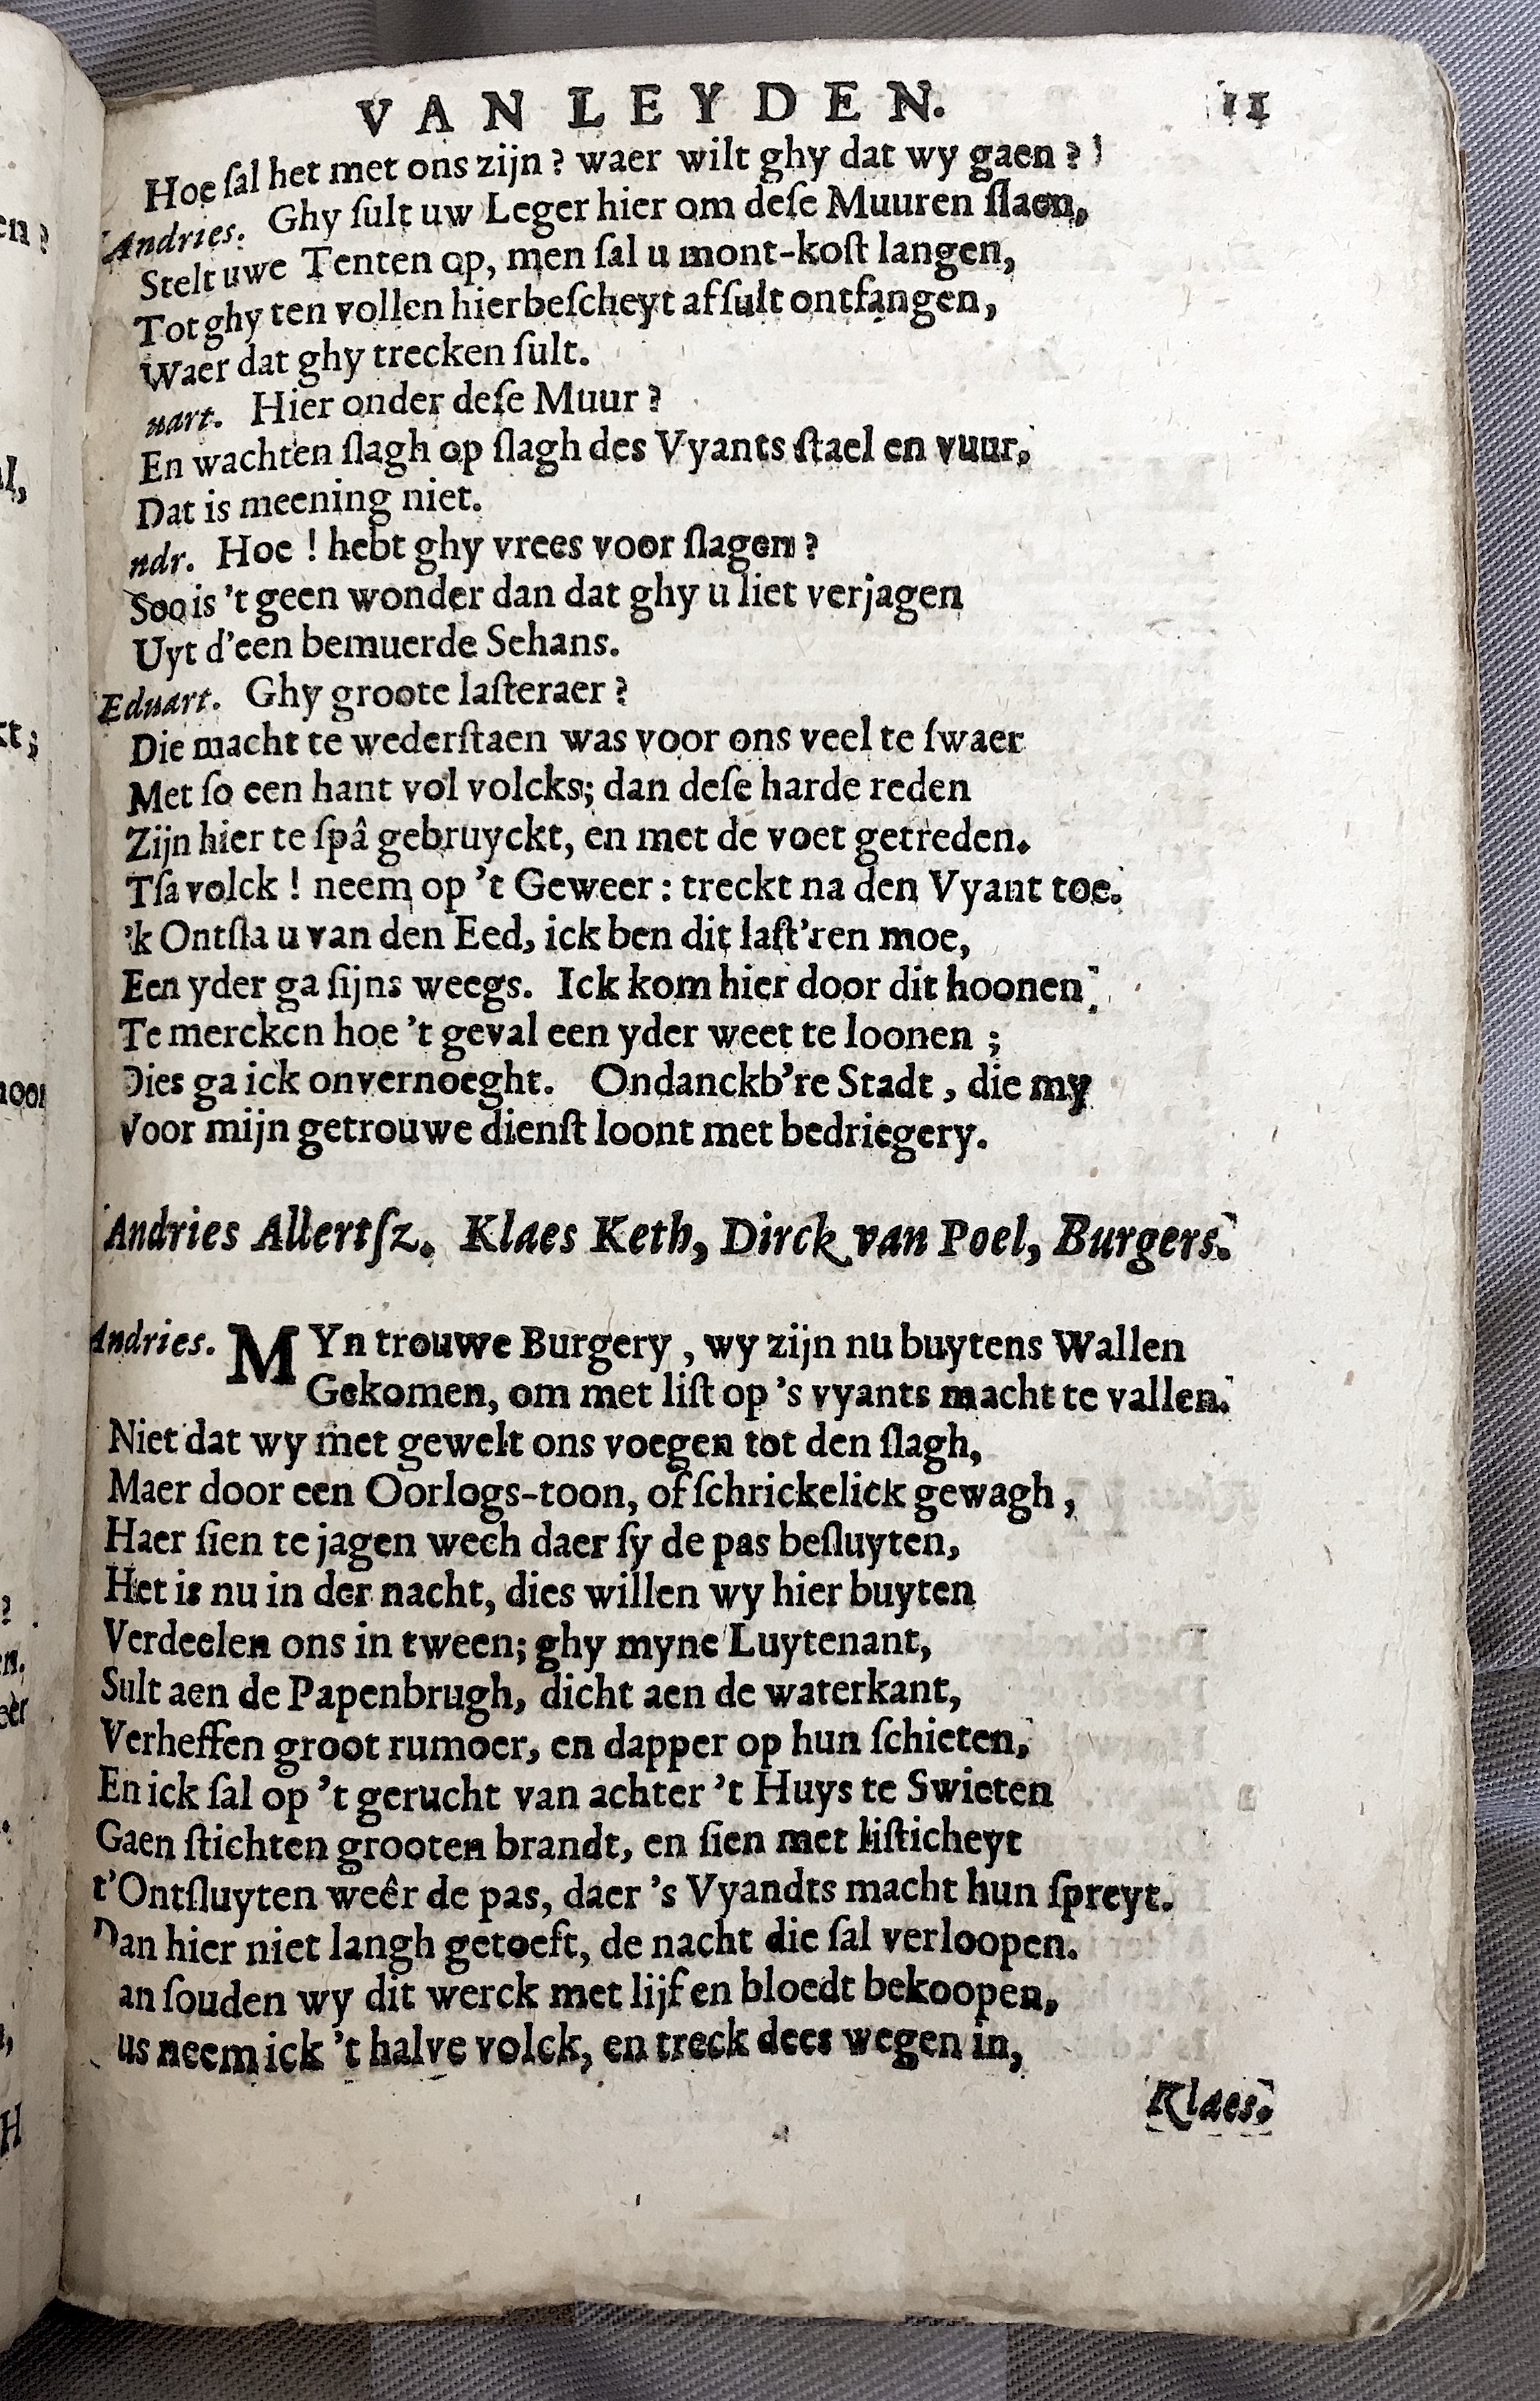 VAN LEYDEN. 11
Hoe ſal het met ons zijn? waer wilt ghy dat wy gaen?
Andries. Ghy ſult uw Leger hier om deſe Muuren ſlaen,
Stelt uwe Tenten op, men ſal u mont-koſt langen,
Tot ghy ten vollen hier beſcheyt af ſult ontfangen,
Waer dat ghy trecken ſult.
uart. Hier onder deſe Muur?
En wachten ſlagh op ſlagh des Vyants ſtael en vuur,
Dat is meening niet.
ndr. Hoe! hebt ghy vrees voor ſlagen?
Soo is 't geen wonder dan dat ghy u liet verjagen
Uyt d'een bemuerde Sehans.
Eduart. Ghy groote laſteraer?
Die macht te wederſtaen was voor ons veel te ſwaer
Met ſo een hant vol volcks; dan deſe harde reden
Zijn hier te ſpâ gebruyckt, en met de voet getreden.
Tſa volck! neem op 't Geweer: treckt na den Vyant toe.
'k Ontſla u van den Eed, ick ben dit laſt'ren moe,
Een yder ga ſijns weegs. Ick kom hier door dit hoonen
Te mercken hoe 't geval een yder weet te loonen;
Dies ga ick onvernoeght. Ondanckb're Stadt, die my
Voor mijn getrouwe dienſt loont met bedriegery.
Andries Allertſz. Klaes Keth, Dirck van Poel, Burgers.
Andries. MYn trouwe Burgery, wy zijn nu buytens Wallen
Gekomen, om met liſt op 's vyants macht te vallen.
Niet dat wy met gewelt ons voegen tot den ſlagh,
Maer door een Oorlogs-toon, of ſchrickelick gewagh,
Haer ſien te jagen wech daer ſy de pas beſluyten,
Het is nu in der nacht, dies willen wy hier buyten
Verdeelen ons in tween; ghy myne Luytenant,
Sult aen de Papenbrugh, dicht aen de waterkant,
Verheffen groot rumoer, en dapper op hun ſchieten,
En ick ſal op 't gerucht van achter 't Huys te Swieten
Gaen ſtichten grooten brandt, en ſien met liſticheyt
t'Ontſluyten weêr de pas, daer 's Vyandts macht hun ſpreyt.
Dan hier niet langh getoeft, de nacht die ſal verloopen.
an ſouden wy dit werck met lijf en bloedt bekoopen,
us neem ick 't halve volck, en treck dees wegen in,
Klaes.